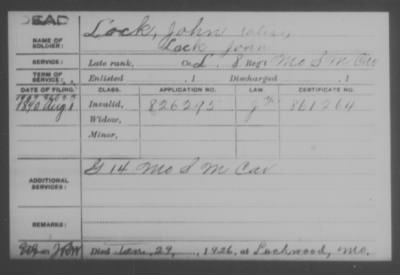 DEAD
NAME OF SOLDIER: Lock, John alias
Lock John
SERVICE: Late rank, Co. L. 8 Reg't Mo S M Cav
TERM OF SERVICE: Enlisted , 1 Discharged , 1
DATE OF FILING. CLASS. APPLICATION NO. LAW. CERTIFICATE NO.
1890 Aug 1 Invalid, 826295 861264
Widow,
Minor,
ADDITIONAL SERVICES: G 14 Mo S M Cav
REMARKS:
Died 29, 1926, at Lockwood, Mo.